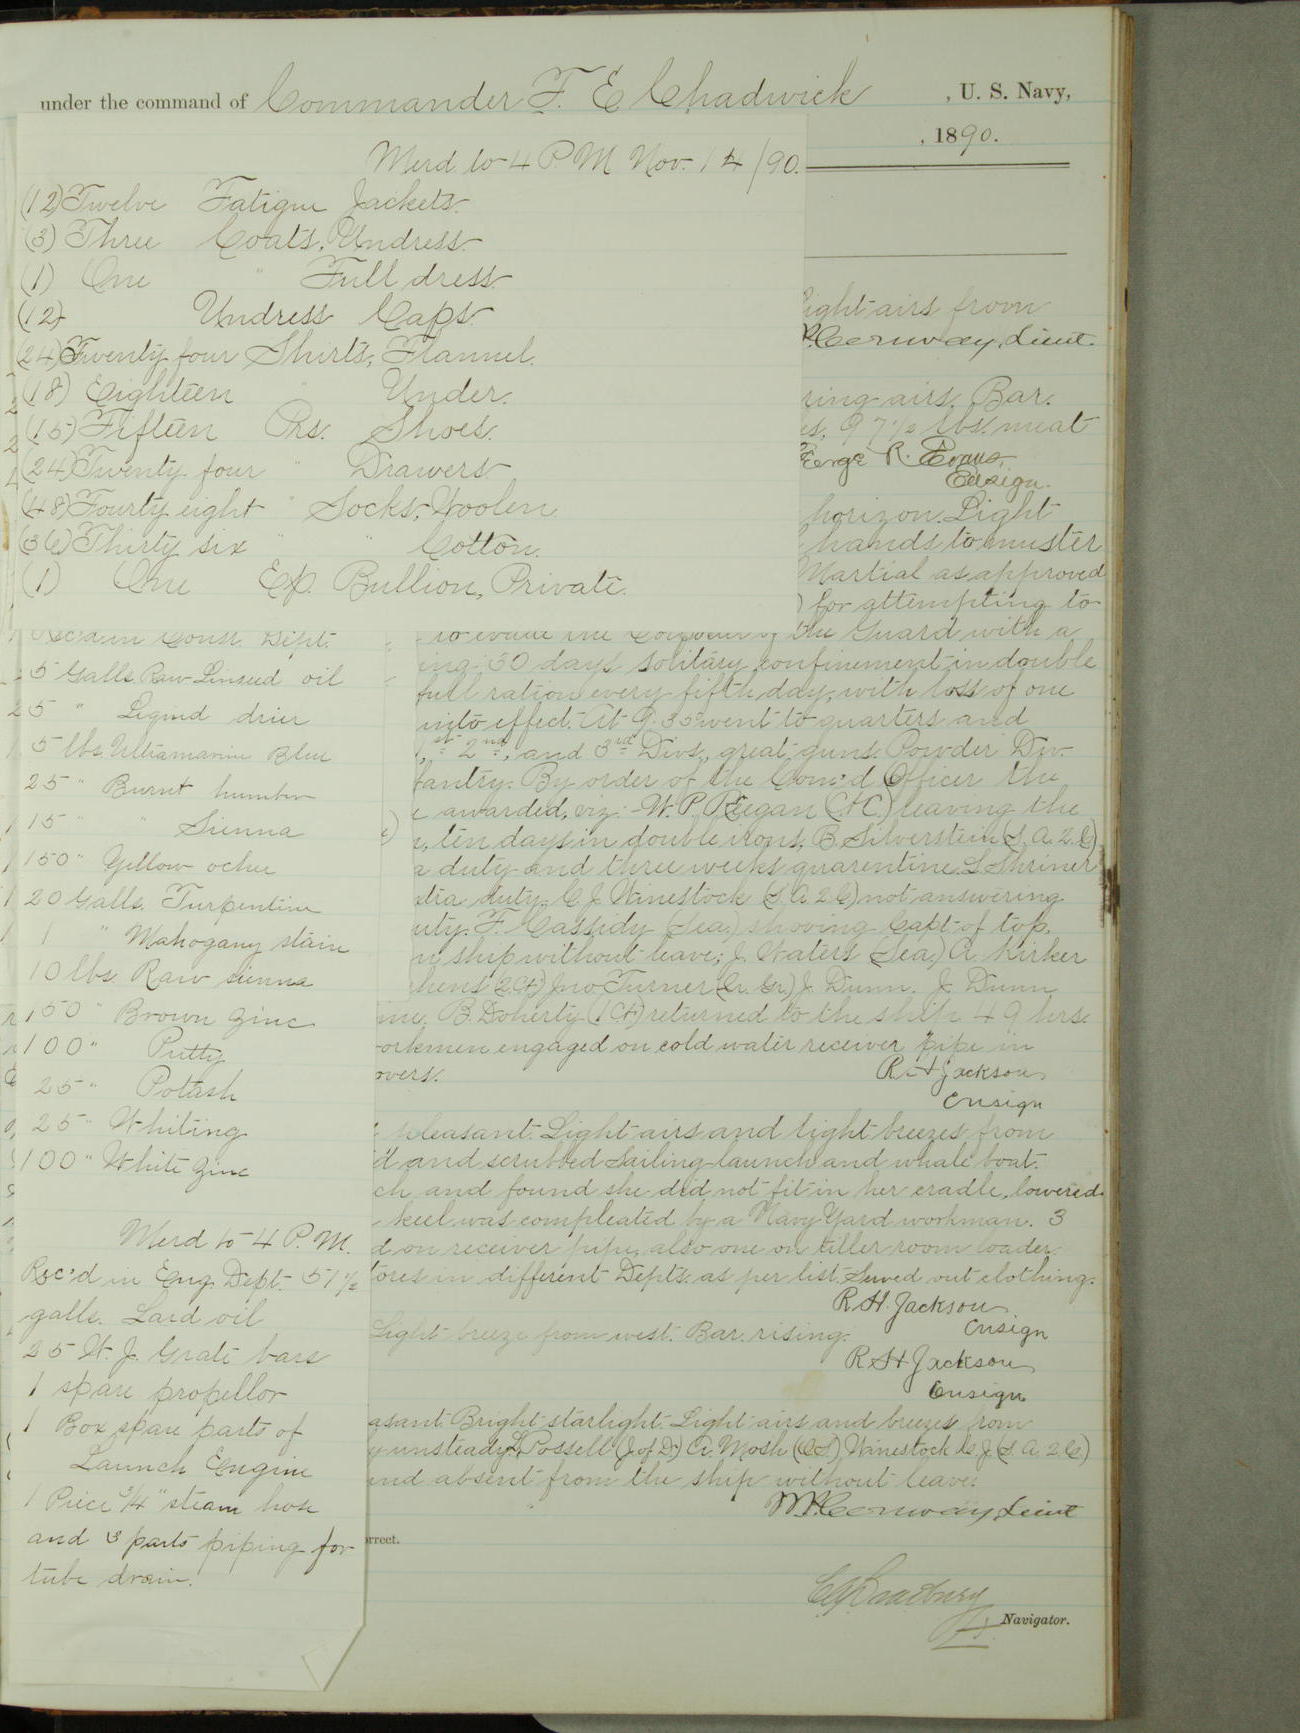 under the command of Commander F. E Chadwick, U. S. Navy,
, 1890.
Merd to 4 P. M Nov. 14/90.
(12) Twelve Fatigue Jackets.
(3) Three Coats, Undress.
(1) One " Full dress.
(12) Undress Caps.
(24) Twenty four Shirts, Flannel.
(18) Eighteen " Under.
(15) Fifteen Prs. Shoes.
(24) Twenty four " Drawers
(48) Fourty eight " Socks, Woolen
(36) Thirty six " " Cotton.
(1) One Ex. Bullion, Private.
Rec'd in Const. Dept.
5 Galls. Raw Linseed oil
25 " Liquid drier
5 lbs. Ultramarine Blue
25 " Burnt humber
15 " " Sienna
150 " Yellow ochre
20 Galls. Turpentine
1 " Mahogany stain
10 lbs. Raw sienna
150 " Brown Zinc
100 " Putty
25 " Potash
25 " Whiting
100 " White Zinc
Merd to 4 P. M.
Rec'd in Eng. Dept. 51 1/2
galls. Lard oil
25 W. J. Grate bars
1 spare propellor
1 Box spare parts of
Launch Engine
1 Piece 3/4" steam hose
and 3 parts piping for
tube drain.
Light airs from
Conway, Lieut.
ring airs. Bar.
es, 97 1/2 lbs. meat
George R. Evans,
Ensign.
horizon. Light
hands to muster
Martial as approved
) for attempting to
to evade the Corporal of the Guard with a
ing: 30 days solitary confinement in double
full ration every fifth day, with loss of one
into effect. At 9.30 went to quarters and
1st 2nd, and 3rd Divs., great guns. Powder Div.
fantry. By order of the Com'd Officer the
e awarded, viz:- W. P. Regan (C.H.C.) leaving the
e, ten days in double irons, B. Silverstein (S. A. 2. C)
a duty and three weeks quarentine. L. Shriner
xtra duty. C. J. Winestock (S. A 2 C) not answering
uty. F. Cassidy (Sea) shoving Capt. of top.
n ship without leave; J. Waters (Sea.) A. Kirker
hens (2. Ch) Jno Turner (Qr. Gr.) J. Dunn. J. Dunn
me. B. Doherty (1 Ch) returned to the ship 49 hrs.
workmen engaged on cold water receiver pipe in
overs.
R H Jackson
Ensign
pleasant. Light airs and light breezes from
'd and scrubbed sailing launch and whale boat.
ch and found she did not fit in her cradle, lowered
keel was compleated by a Navy Yard workman. 3
d on receiver pipe, also one on tiller room loader.
tores in different Depts. as per list. Served out clothing.
R. H. Jackson
Ensign
Light breeze from west. Bar. rising.
R H Jackson
Ensign
asant. Bright starlight. Light airs and breezes from
y unsteady. L. Possell (J. of D.) A. Mosh (O.S.) Winestock C. J. (S. A. 2. C)
and absent from the ship without leave.
W P. Conway, Lieut
orrect.
Navigator.